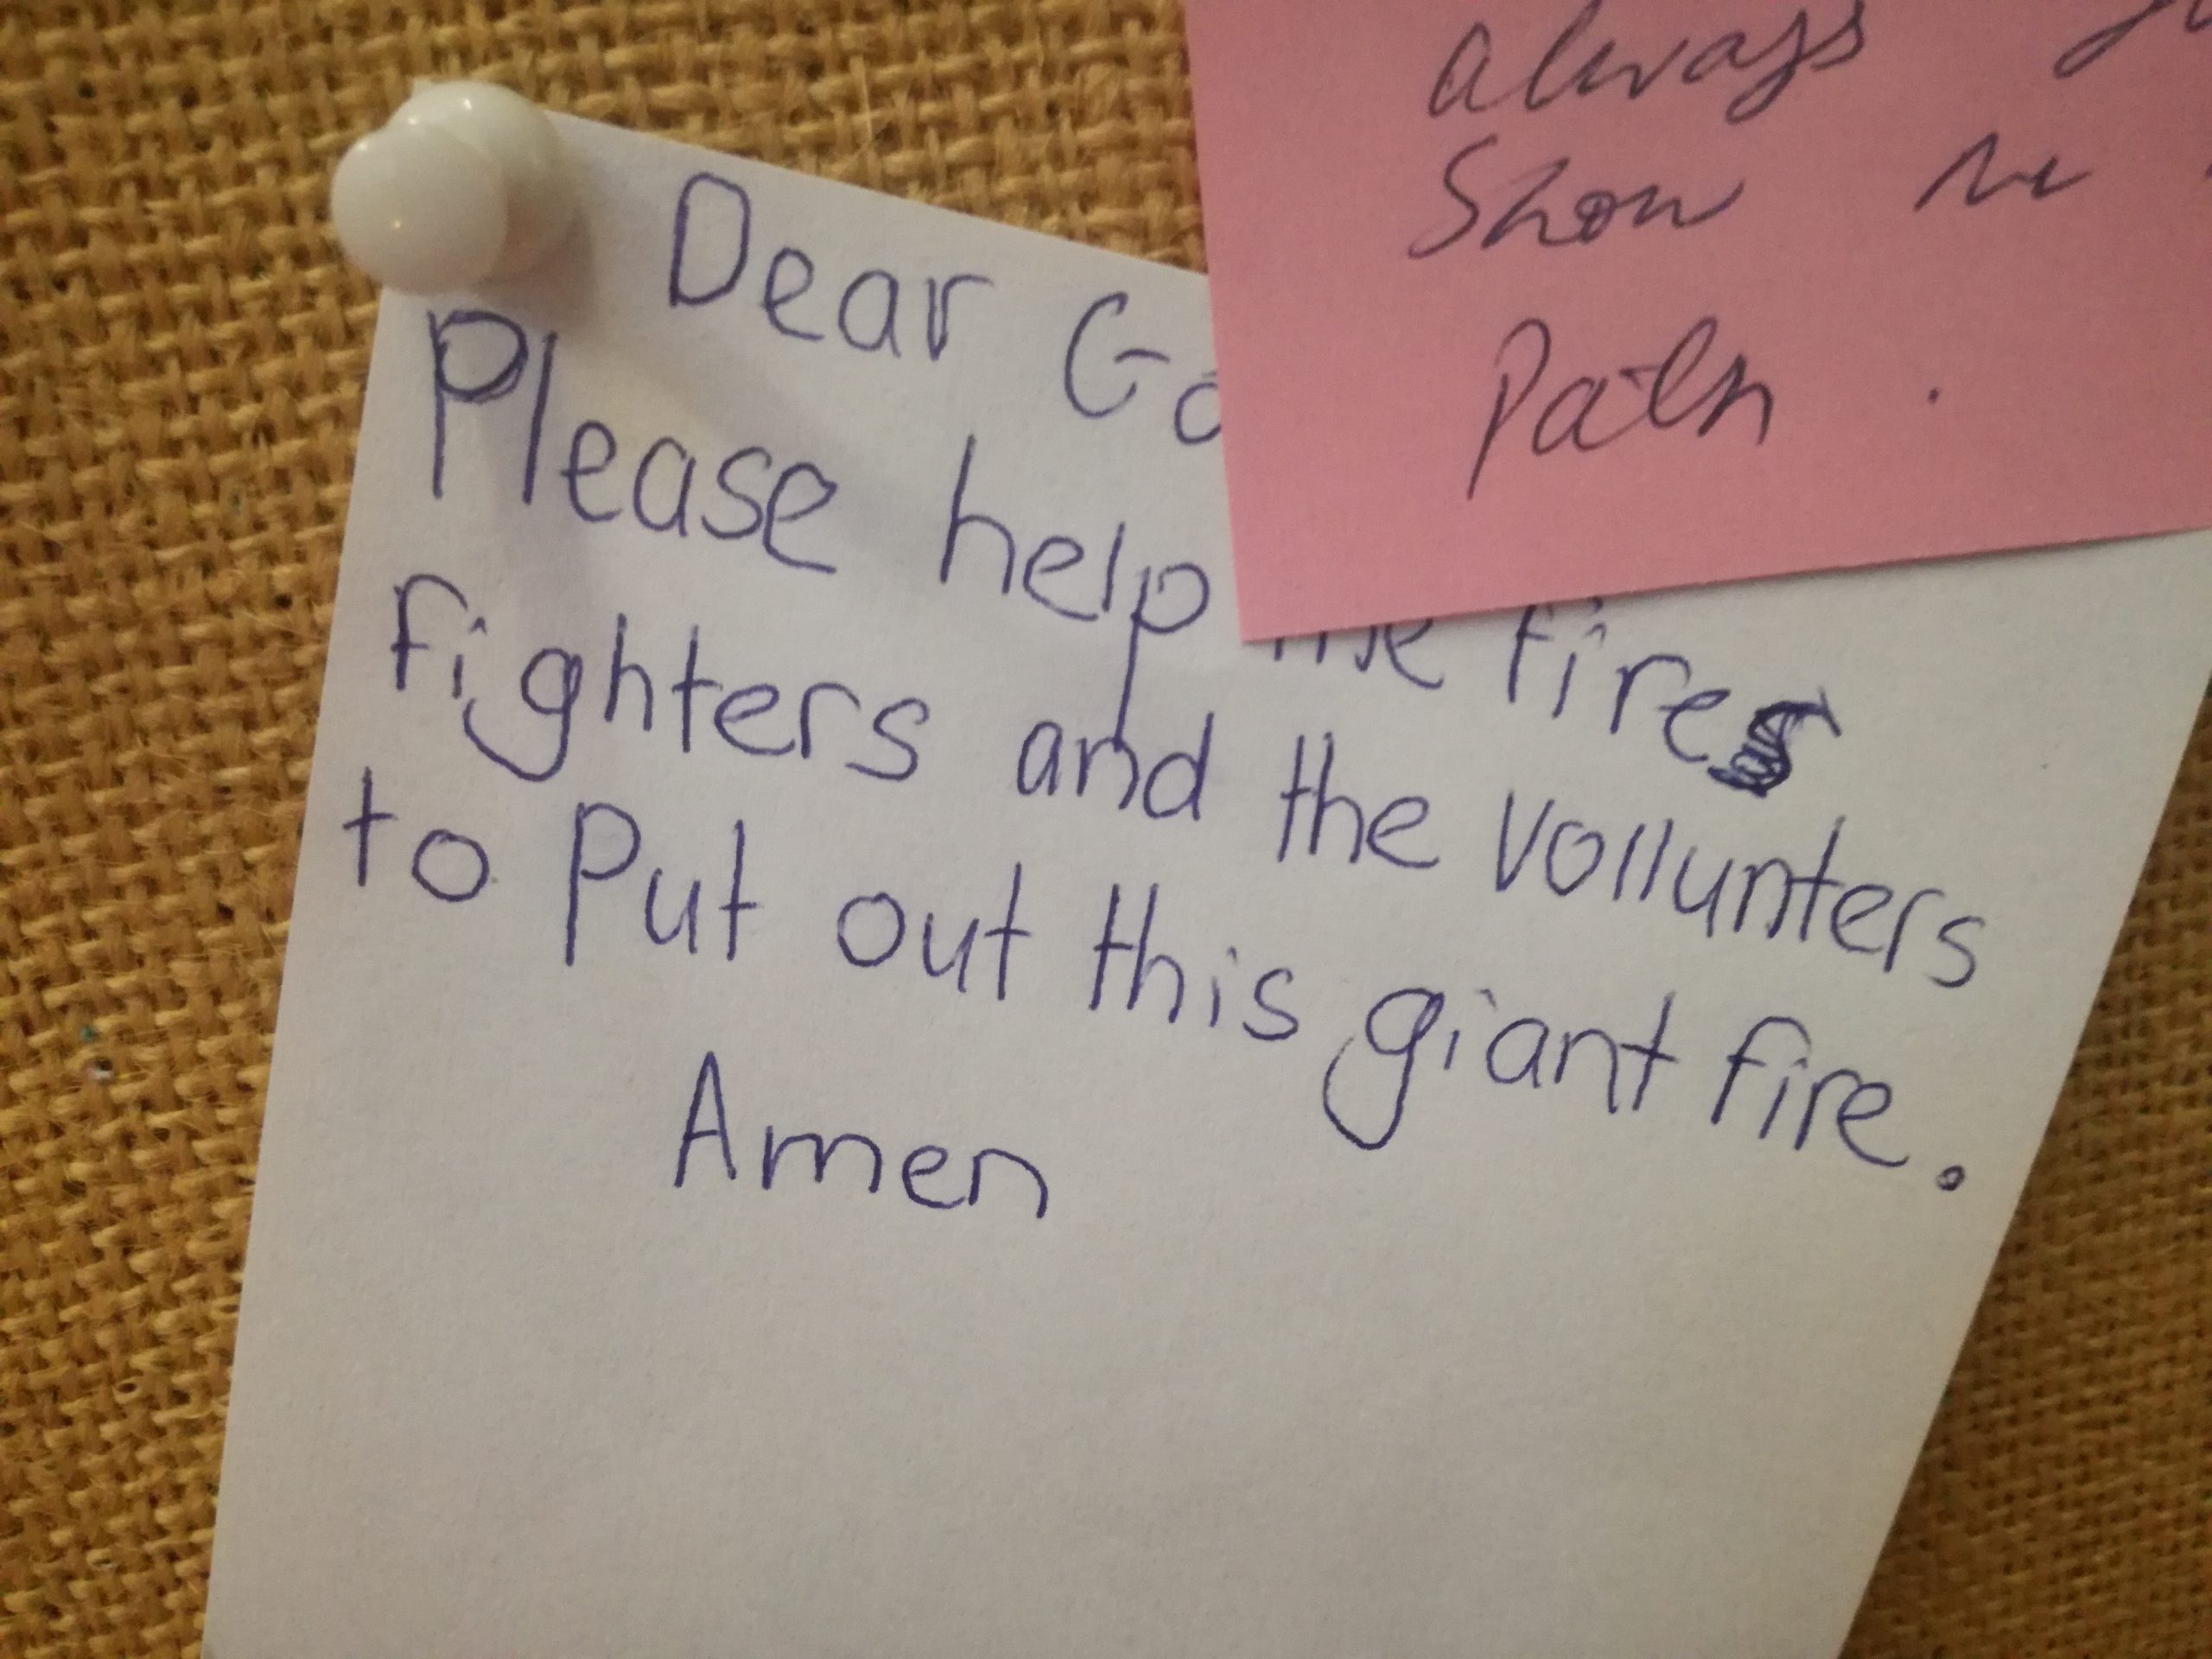 always
show me
path.
Dear Go
Please help the fires
fighters and the vollunters
to Put out this giant fire.
Amen